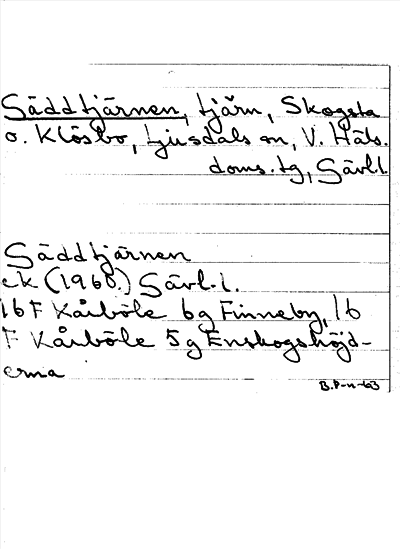 Säddtjärnen, tjärn, Skogsta
o. Klösbo, Ljusdals sn, V. Häls.
doms. tg, Gävl.l.
Säddtjärnen
ek (1960.) Gävl. l.
16 F Kårböle 6g Finneby, 16
F Kårböle 5g Enskogshöjd-
erna
B.P-n-63